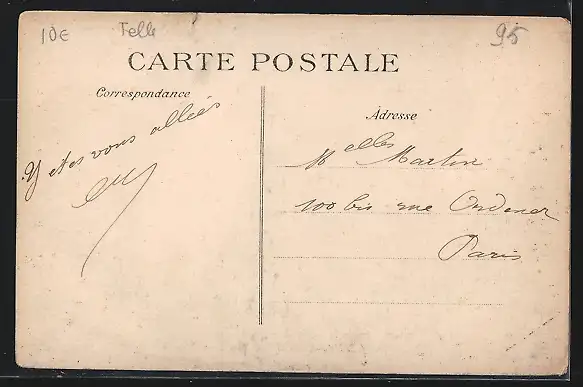 10€ Felle 95
CARTE POSTALE
Correspondance
Adresse
Y etes vous allées
Melles Martin
100 bis rue Ordener
Paris